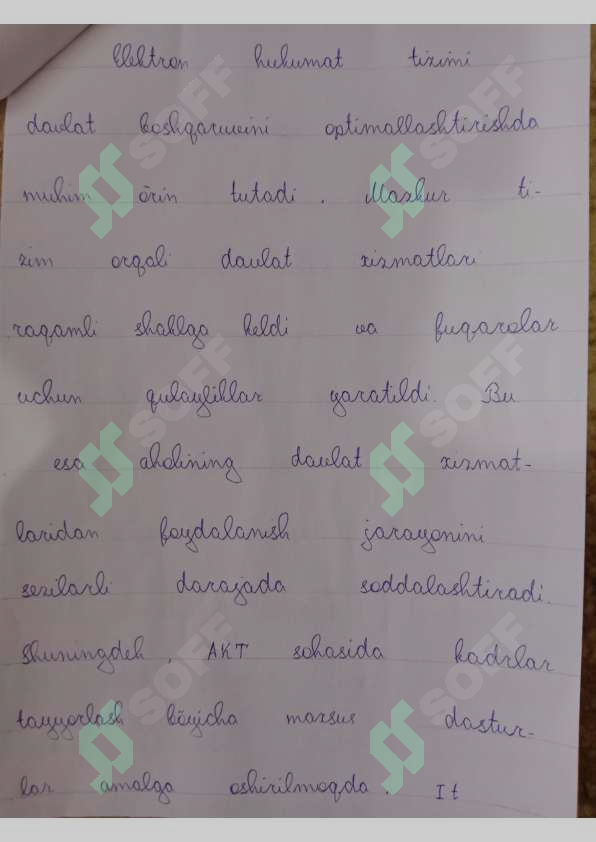 Elektron hukumat tizimi
davlat boshqaruvini optimallashtirishda
muhim õrin tutadi. Mazkur ti-
zim orqali davlat xizmatlari
raqamli shaklga keldi va fuqarolar
uchun qulayliklar yaratildi. Bu
esa aholining davlat xizmat-
laridan foydalanish jarayonini
sezilarli darajada soddalashtiradi.
Shuningdek, AKT sohasida kadrlar
tayyorlash bõyicha maxsus dastur-
lar amalga oshirilmoqda. It
SOFF
SOFF
SOFF
SOFF
SOFF
SOFF